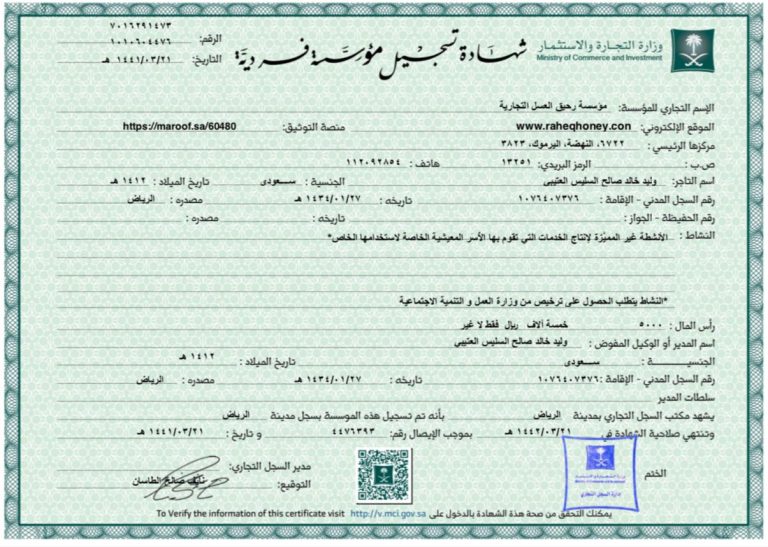 وزارة التجارة والاستثمار
Ministry of Commerce and Investment
شهادة تسجيل مؤسسة فردية
٧٠١٦٢٩١٤٧٣
الرقم: ١٠١٠٦٠٤٤٧٦
التاريخ: ١٤٤١/٠٣/٢١ هـ
الإسم التجاري للمؤسسة: مؤسسة رحيق العسل التجارية
الموقع الإلكتروني: www.raheqhoney.con منصة التوثيق: https://maroof.sa/60480
مركزها الرئيسي: ٦٧٢٢، النهضة، اليرموك، ٣٨٢٣
ص.ب: الرمز البريدي: ١٣٢٥١ هاتف: ١١٢٠٩٢٨٥٤
اسم التاجر: وليد خالد صالح السليس العتيبي الجنسية: سعودى تاريخ الميلاد: ١٤١٢ هـ
رقم السجل المدني - الإقامة: ١٠٧٦٤٠٧٣٧٦ تاريخه: ١٤٣٤/٠١/٢٧ هـ مصدره: الرياض
رقم الحفيظة - الجواز: تاريخه: مصدره:
النشاط: الأنشطة غير المميّزة لإنتاج الخدمات التي تقوم بها الأسر المعيشية الخاصة لاستخدامها الخاص*
*النشاط يتطلب الحصول على ترخيص من وزارة العمل و التنمية الاجتماعية
رأس المال: ٥٠٠٠ خمسة آلاف ريال فقط لا غير
اسم المدير أو الوكيل المفوض: وليد خالد صالح السليس العتيبي
الجنسيـــــــة: سعودى تاريخ الميلاد: ١٤١٢ هـ
رقم السجل المدني - الإقامة: ١٠٧٦٤٠٧٣٧٦ تاريخه: ١٤٣٤/٠١/٢٧ هـ مصدره: الرياض
سلطات المدير
يشهد مكتب السجل التجاري بمدينة الرياض بأنه تم تسجيل هذه الموسسة بسجل مدينة الرياض
وتنتهي صلاحية الشهادة في ١٤٤٢/٠٣/٢١ هـ بموجب الإيصال رقم: ٤٤٧٦٣٩٣ و تاريخ: ١٤٤١/٠٣/٢١ هـ
الختم
وزارة التجارة والاستثمار
Ministry of Commerce and Investment
إدارة السجل التجاري
مدير السجل التجاري:
التوقيع: نايف صالح الطاسان
يمكنك التحقق من صحة هذة الشهادة بالدخول على http://v.mci.gov.sa To Verify the information of this certificate visit